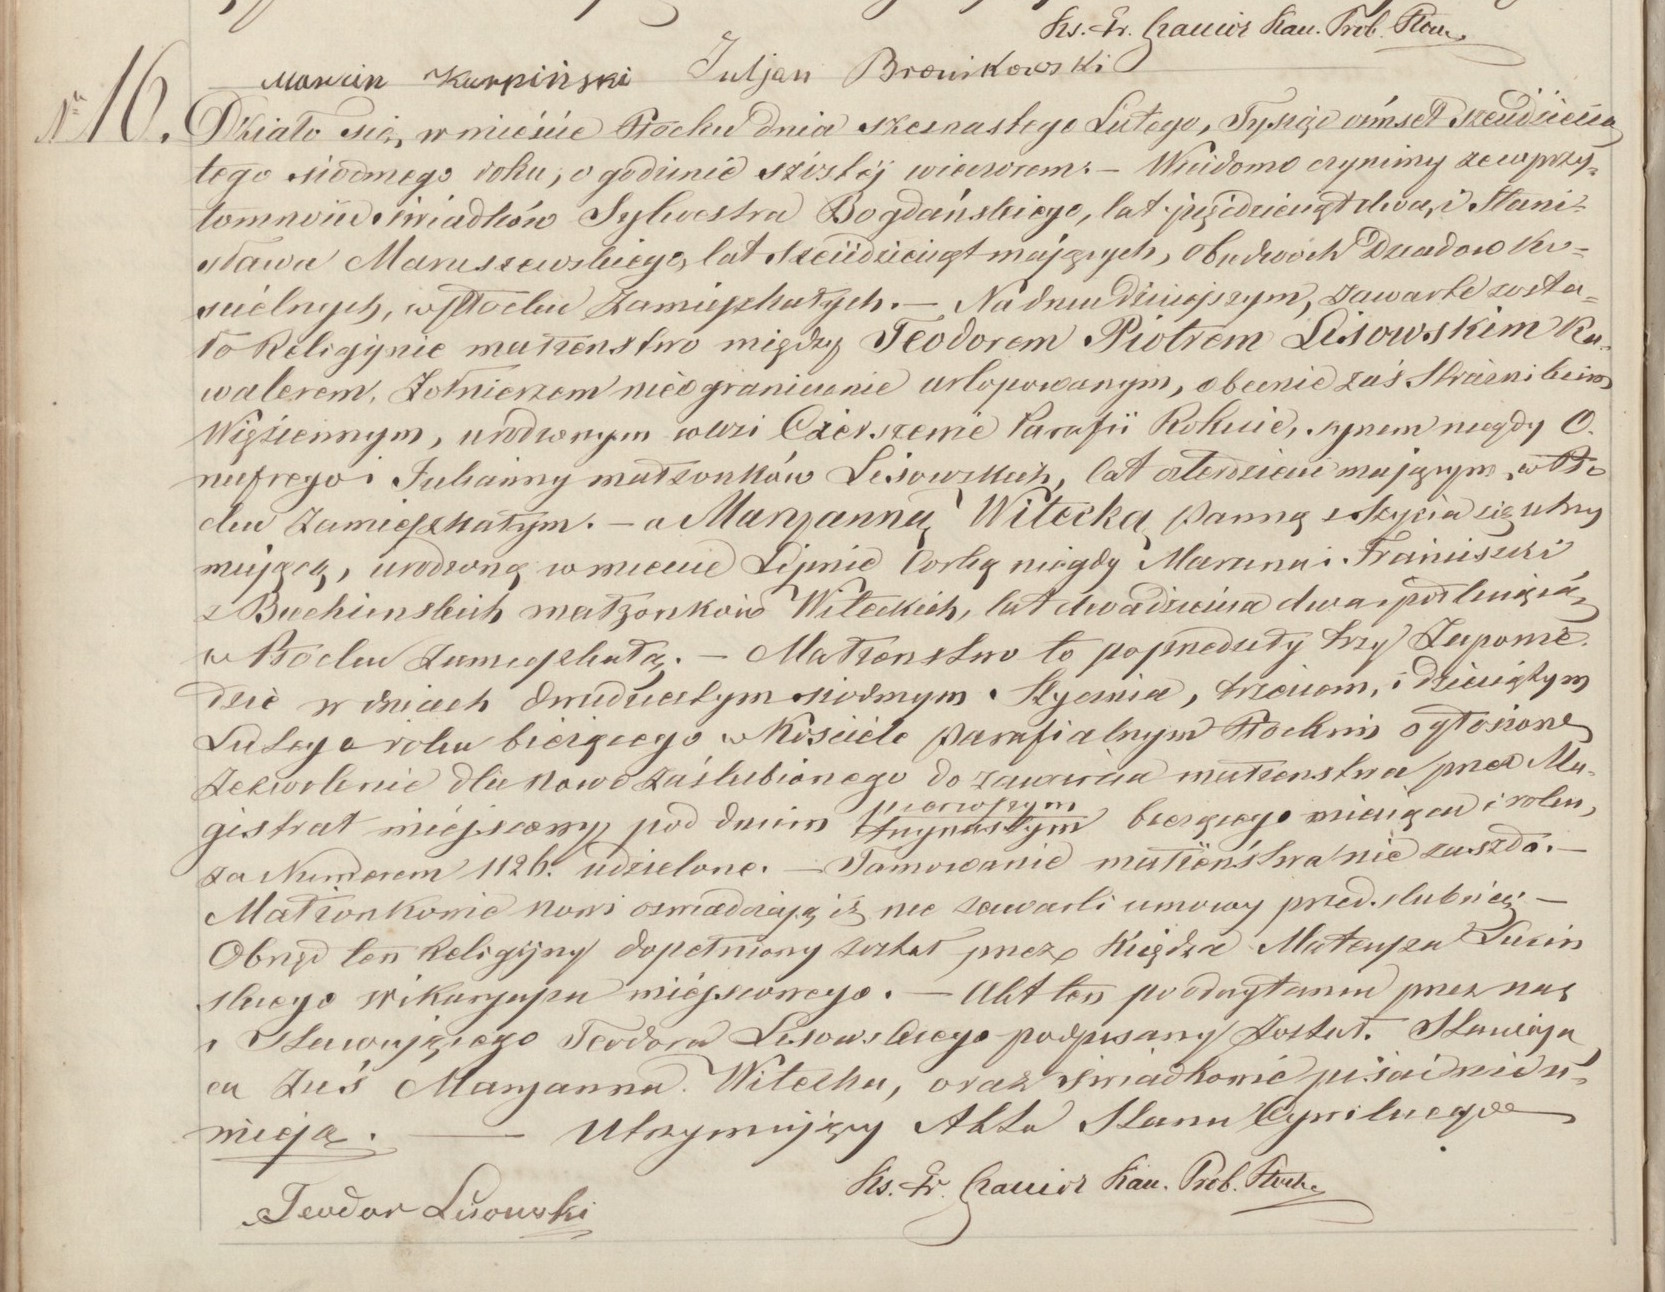 Ks. Fr. Kan. Prob. Płoc.
Marcin Karpiński Juljan Bronikowski
Nr 16. Działo się, w mieście Płocku dnia szesnastego Lutego, Tysiąc ósmset sześćdziesią
tego siódmego roku, o godzinie szóstéj wieczorem. — Wiadomo czynimy że w przy-
tomności świadków Sylwestra Bogdańskiego, lat pięćdziesiąt dwa, i Stani-
sława Maruszewskiego, lat sześćdziesiąt mających, obudwóch Dziadów Ko-
ścielnych, w Płocku zamieszkałych. — Na dniu dzisiejszym, zawarte zosta-
ło Religijnie małżeństwo między Teodorem Piotrem Lisowskim Ka-
walerem, Żołnierzem nieograniczenie urlopowanym, obecnie zaś Strażnikiem
Więziennym, urodzonym w wsi Cierszewie Parafii Rokicie, synem niegdy O-
nufrego i Julianny małżonków Lisowskich, lat czterdzieści mającym, w Pło
cku zamieszkałym. — a Maryanną Witecką Panną z szycia się utrzy
mującą, urodzoną w mieście Lipnie Córką niegdy Marcina i Franciszki
z małżonków Witeckich, lat dwadzieścia dwa i pół liczącą,
w Płocku zamieszkałą. — Małżeństwo to poprzedziły trzy Zapowie-
dzie w dniach dwudziestym siódmym Stycznia, trzecim, i dziesiątym
Lutego roku bieżącego w Kościele parafialnym Płockim ogłoszone
Zezwolenie dla nowo zaślubionego do zawarcia małżeństwa przez Ma-
gistrat miejscowy pod dniem pierwszym bieżącego miesiąca i roku,
za Numerem 1126. udzielone. — Tamowanie małżeństwa nie zaszło. —
Małżonkowie nowi oświadczają iż nie zawarli umowy przedślubnéj —
Obrzęd ten Religijny dopełniony został przez Księdza Mateusza
skiego Wikaryusza miejscowego. — Akt ten po odczytaniu przez nas
i Stawającego Teodora Lisowskiego podpisany został. Stawają
ca zaś Maryanna Witecka, oraz świadkowie pisać nie u-
mieją. — Utrzymujący Akta Stanu Cywilnego
Ks. Fr. Kan. Prob. Płock.
Teodor Lisowski